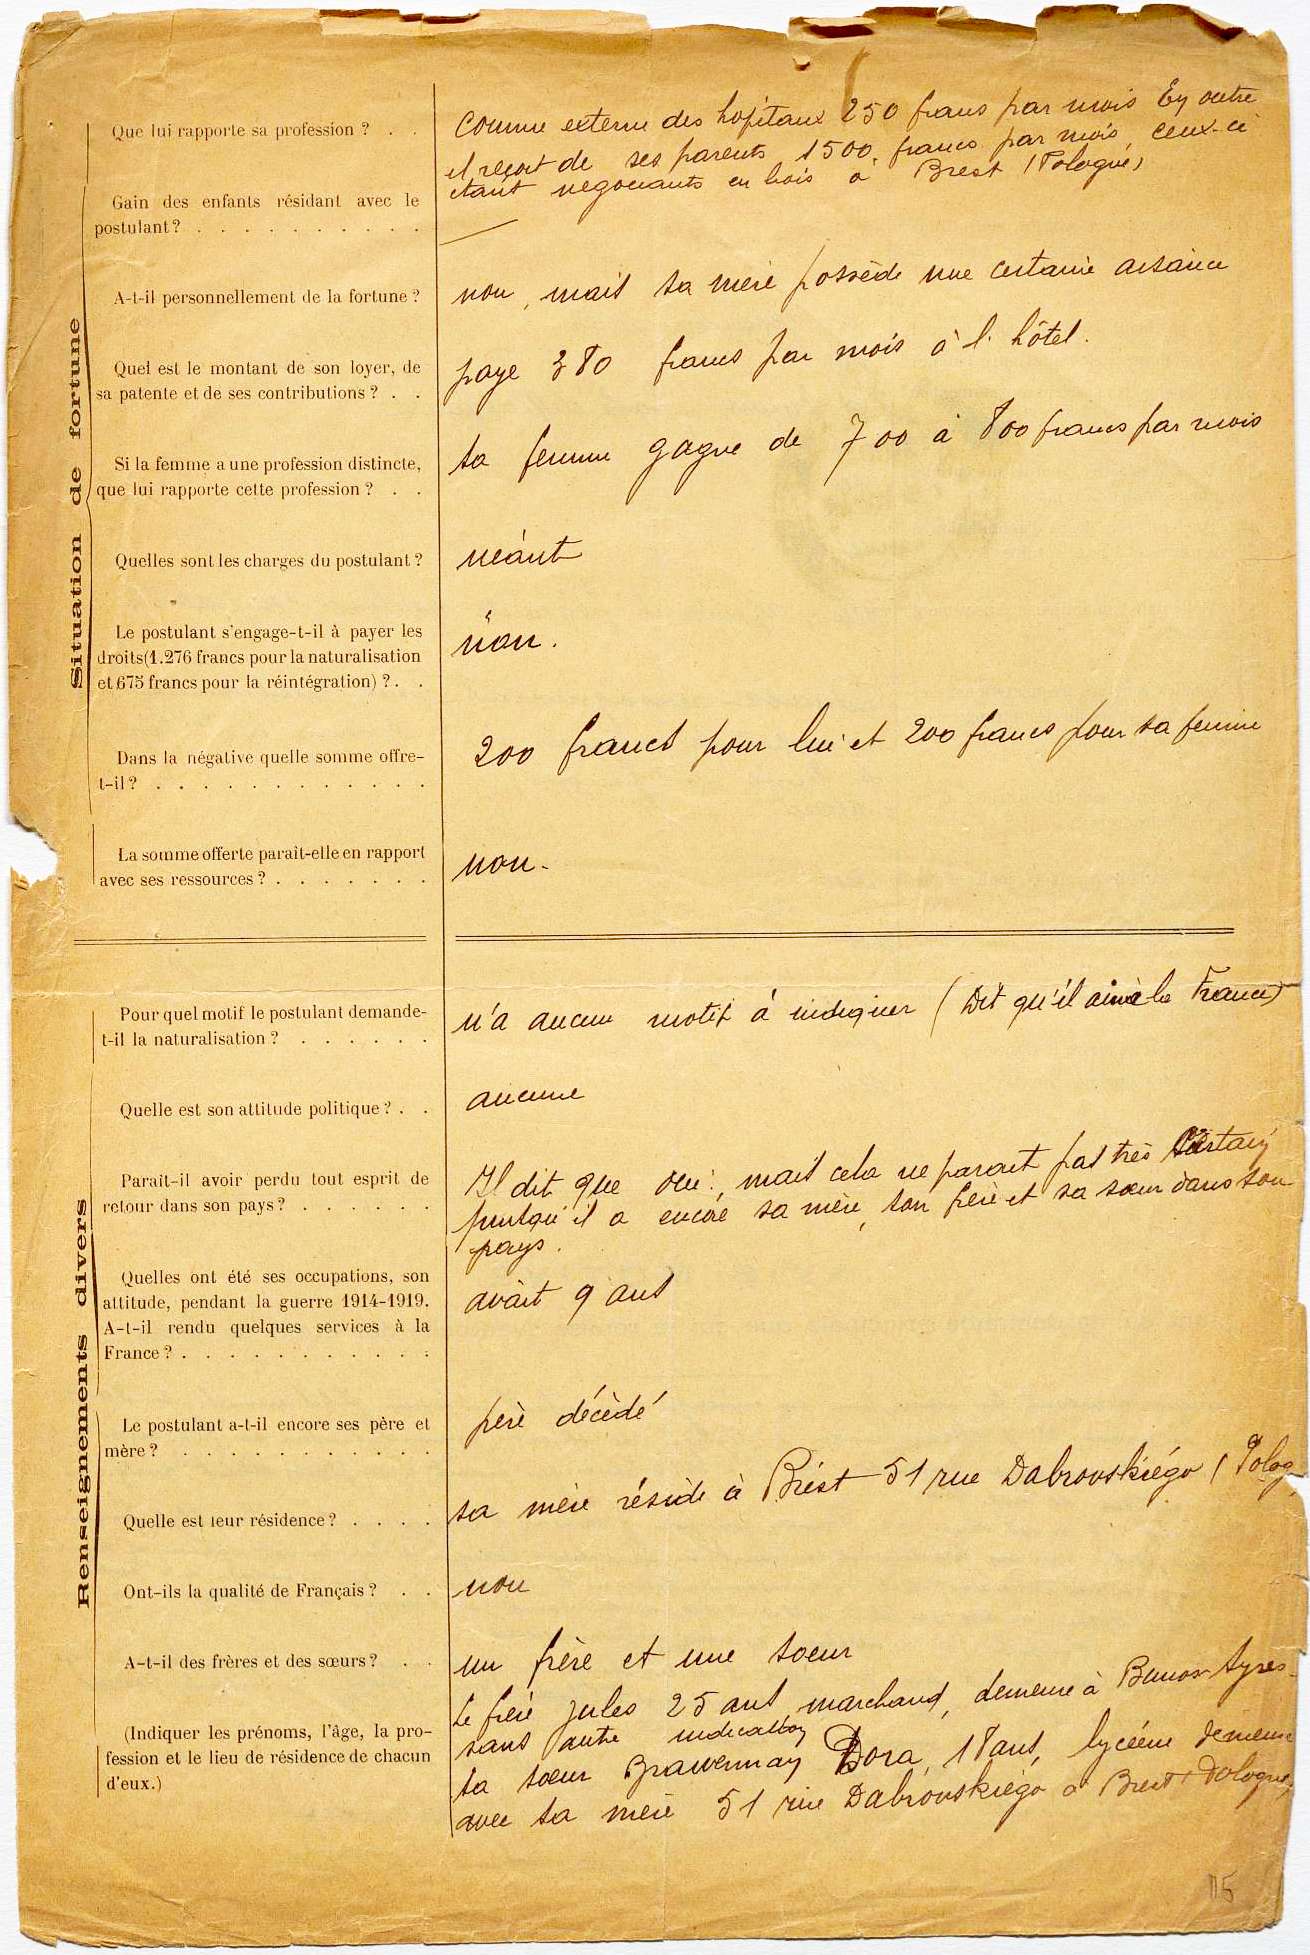 Situation de fortune
Que lui rapporte sa profession ? . .
comme externe des hopitaux 250 francs par mois En outre
il reçoit de ses parents 1500 francs par mois, ceux-ci
étant negociants en bois à Brest (Pologne)
Gain des enfants résidant avec le
postulant ? . . . . . . . . . .
—
A-t-il personnellement de la fortune ?
non, mais sa mère possède une certaine aisance
Quel est le montant de son loyer, de
sa patente et de ses contributions ? . .
paye 380 francs par mois à l'hôtel.
Si la femme a une profession distincte,
que lui rapporte cette profession ? . .
sa femme gagne de 700 à 800 francs par mois
Quelles sont les charges du postulant ?
néant
Le postulant s'engage-t-il à payer les
droits (1.276 francs pour la naturalisation
et 675 francs pour la réintégration) ? . .
non.
Dans la négative quelle somme offre-
t-il ? . . . . . . . . . . . .
200 francs pour lui et 200 francs pour sa femme
La somme offerte paraît-elle en rapport
avec ses ressources ? . . . . . . .
non.
Renseignements divers
Pour quel motif le postulant demande-
t-il la naturalisation ? . . . . . .
n'a aucun motif à indiquer (Dit qu'il aime la France)
Quelle est son attitude politique ? . .
aucune
Parait-il avoir perdu tout esprit de
retour dans son pays ? . . . . . .
Il dit que oui, mais cela ne parait pas très certain
puisqu'il a encore sa mère, son frère et sa sœur dans son
pays.
Quelles ont été ses occupations, son
attitude, pendant la guerre 1914-1919.
A-t-il rendu quelques services à la
France ? . . . . . . . . . . .
avait 9 ans
Le postulant a-t-il encore ses père et
mère ? . . . . . . . . . . .
père décédé
Quelle est leur résidence ? . . . .
sa mère réside à Brest 51 rue Dabrovskiégo (Polog
Ont-ils la qualité de Français ? . .
non
A-t-il des frères et des sœurs ? . .
un frère et une soeur
(Indiquer les prénoms, l'âge, la pro-
fession et le lieu de résidence de chacun
d'eux.)
Le frère Jules 25 ans marchand, demeure à Buenos-Ayres-
sans autre indication
sa soeur Brawerman Dora, 18 ans, lycéenne demeure
avec sa mère 51 rue Dabrovskiégo à Brest (Pologne)
115